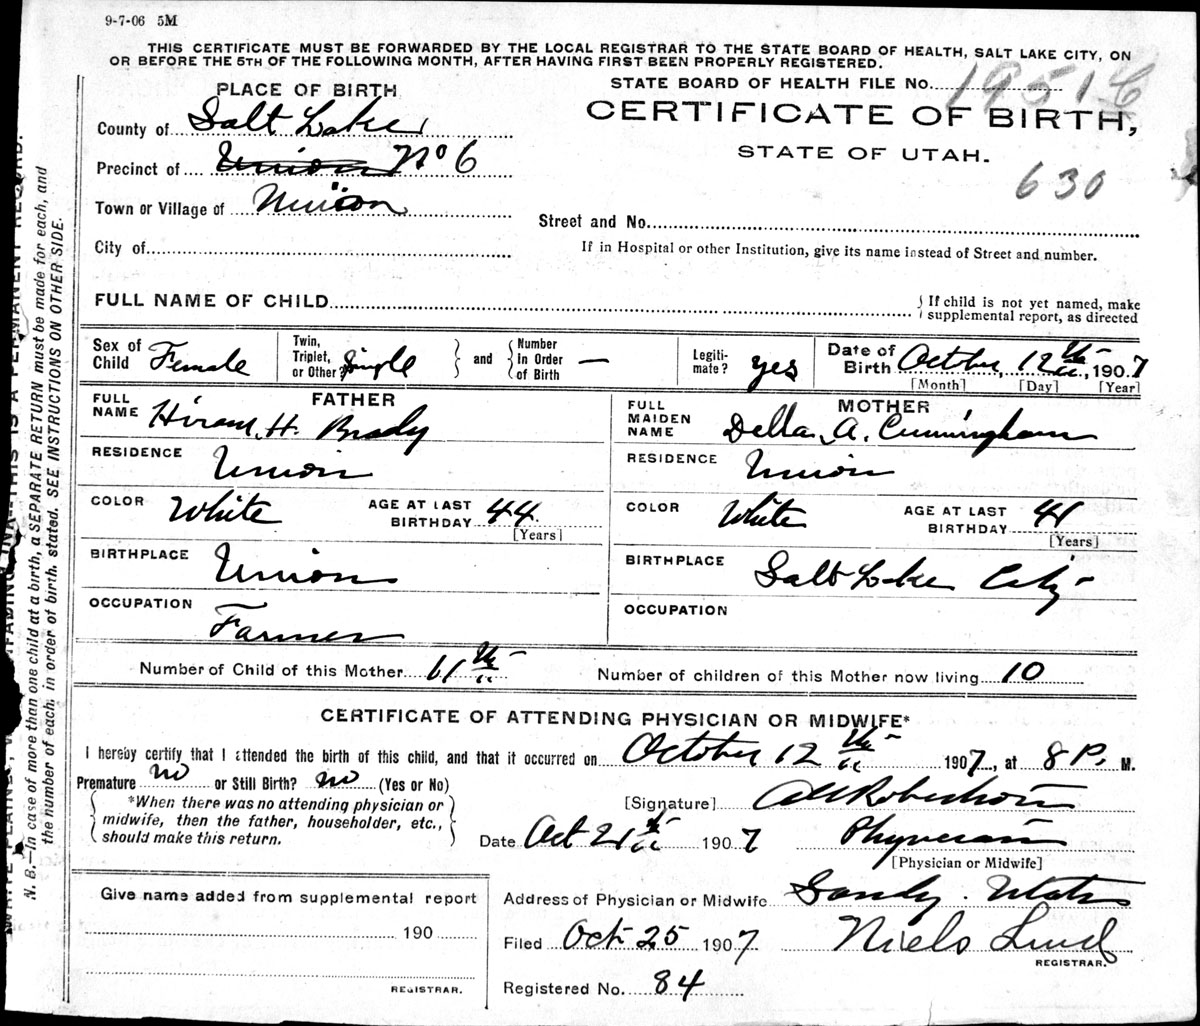 9-7-06 5M
THIS CERTIFICATE MUST BE FORWARDED BY THE LOCAL REGISTRAR TO THE STATE BOARD OF HEALTH, SALT LAKE CITY, ON
OR BEFORE THE 5TH OF THE FOLLOWING MONTH, AFTER HAVING FIRST BEEN PROPERLY REGISTERED.
PLACE OF BIRTH
STATE BOARD OF HEALTH FILE No.
CERTIFICATE OF BIRTH,
STATE OF UTAH.
630
County of Salt Lake
Precinct of Union No 6
Town or Village of Union
City of
Street and No.
If in Hospital or other Institution, give its name instead of Street and number.
FULL NAME OF CHILD
{ If child is not yet named, make
supplemental report, as directed
Sex of Child Female
Twin, Triplet, or Other? Single } and { Number In Order of Birth —
Legiti-mate? yes
Date of Birth October, 12th, 1907
[Month] [Day] [Year]
FATHER
FULL NAME Hiram, H. Brady
RESIDENCE Union
COLOR White AGE AT LAST BIRTHDAY 44 [Years]
BIRTHPLACE Union
OCCUPATION Farmer
MOTHER
FULL MAIDEN NAME Della, A. Cunningham
RESIDENCE Union
COLOR White AGE AT LAST BIRTHDAY 41 [Years]
BIRTHPLACE Salt Lake City
OCCUPATION
Number of Child of this Mother 11th
Number of children of this Mother now living 10
CERTIFICATE OF ATTENDING PHYSICIAN OR MIDWIFE*
I hereby certify that I attended the birth of this child, and that it occurred on October 12th 1907, at 8 P. M.
Premature no or Still Birth? no (Yes or No)
{ *When there was no attending physician or
midwife, then the father, householder, etc.,
should make this return. }
[Signature] Robertson
Date Oct 21st 1907 Physician
[Physician or Midwife]
Address of Physician or Midwife Sandy. Utah
Filed Oct 25 1907 Niels Lind
REGISTRAR.
Registered No. 84
Give name added from supplemental report
190
REGISTRAR.
N. B.—In case of more than one child at a birth, a SEPARATE RETURN must be made for each, and
the number of each, in order of birth, stated. SEE INSTRUCTIONS ON OTHER SIDE.